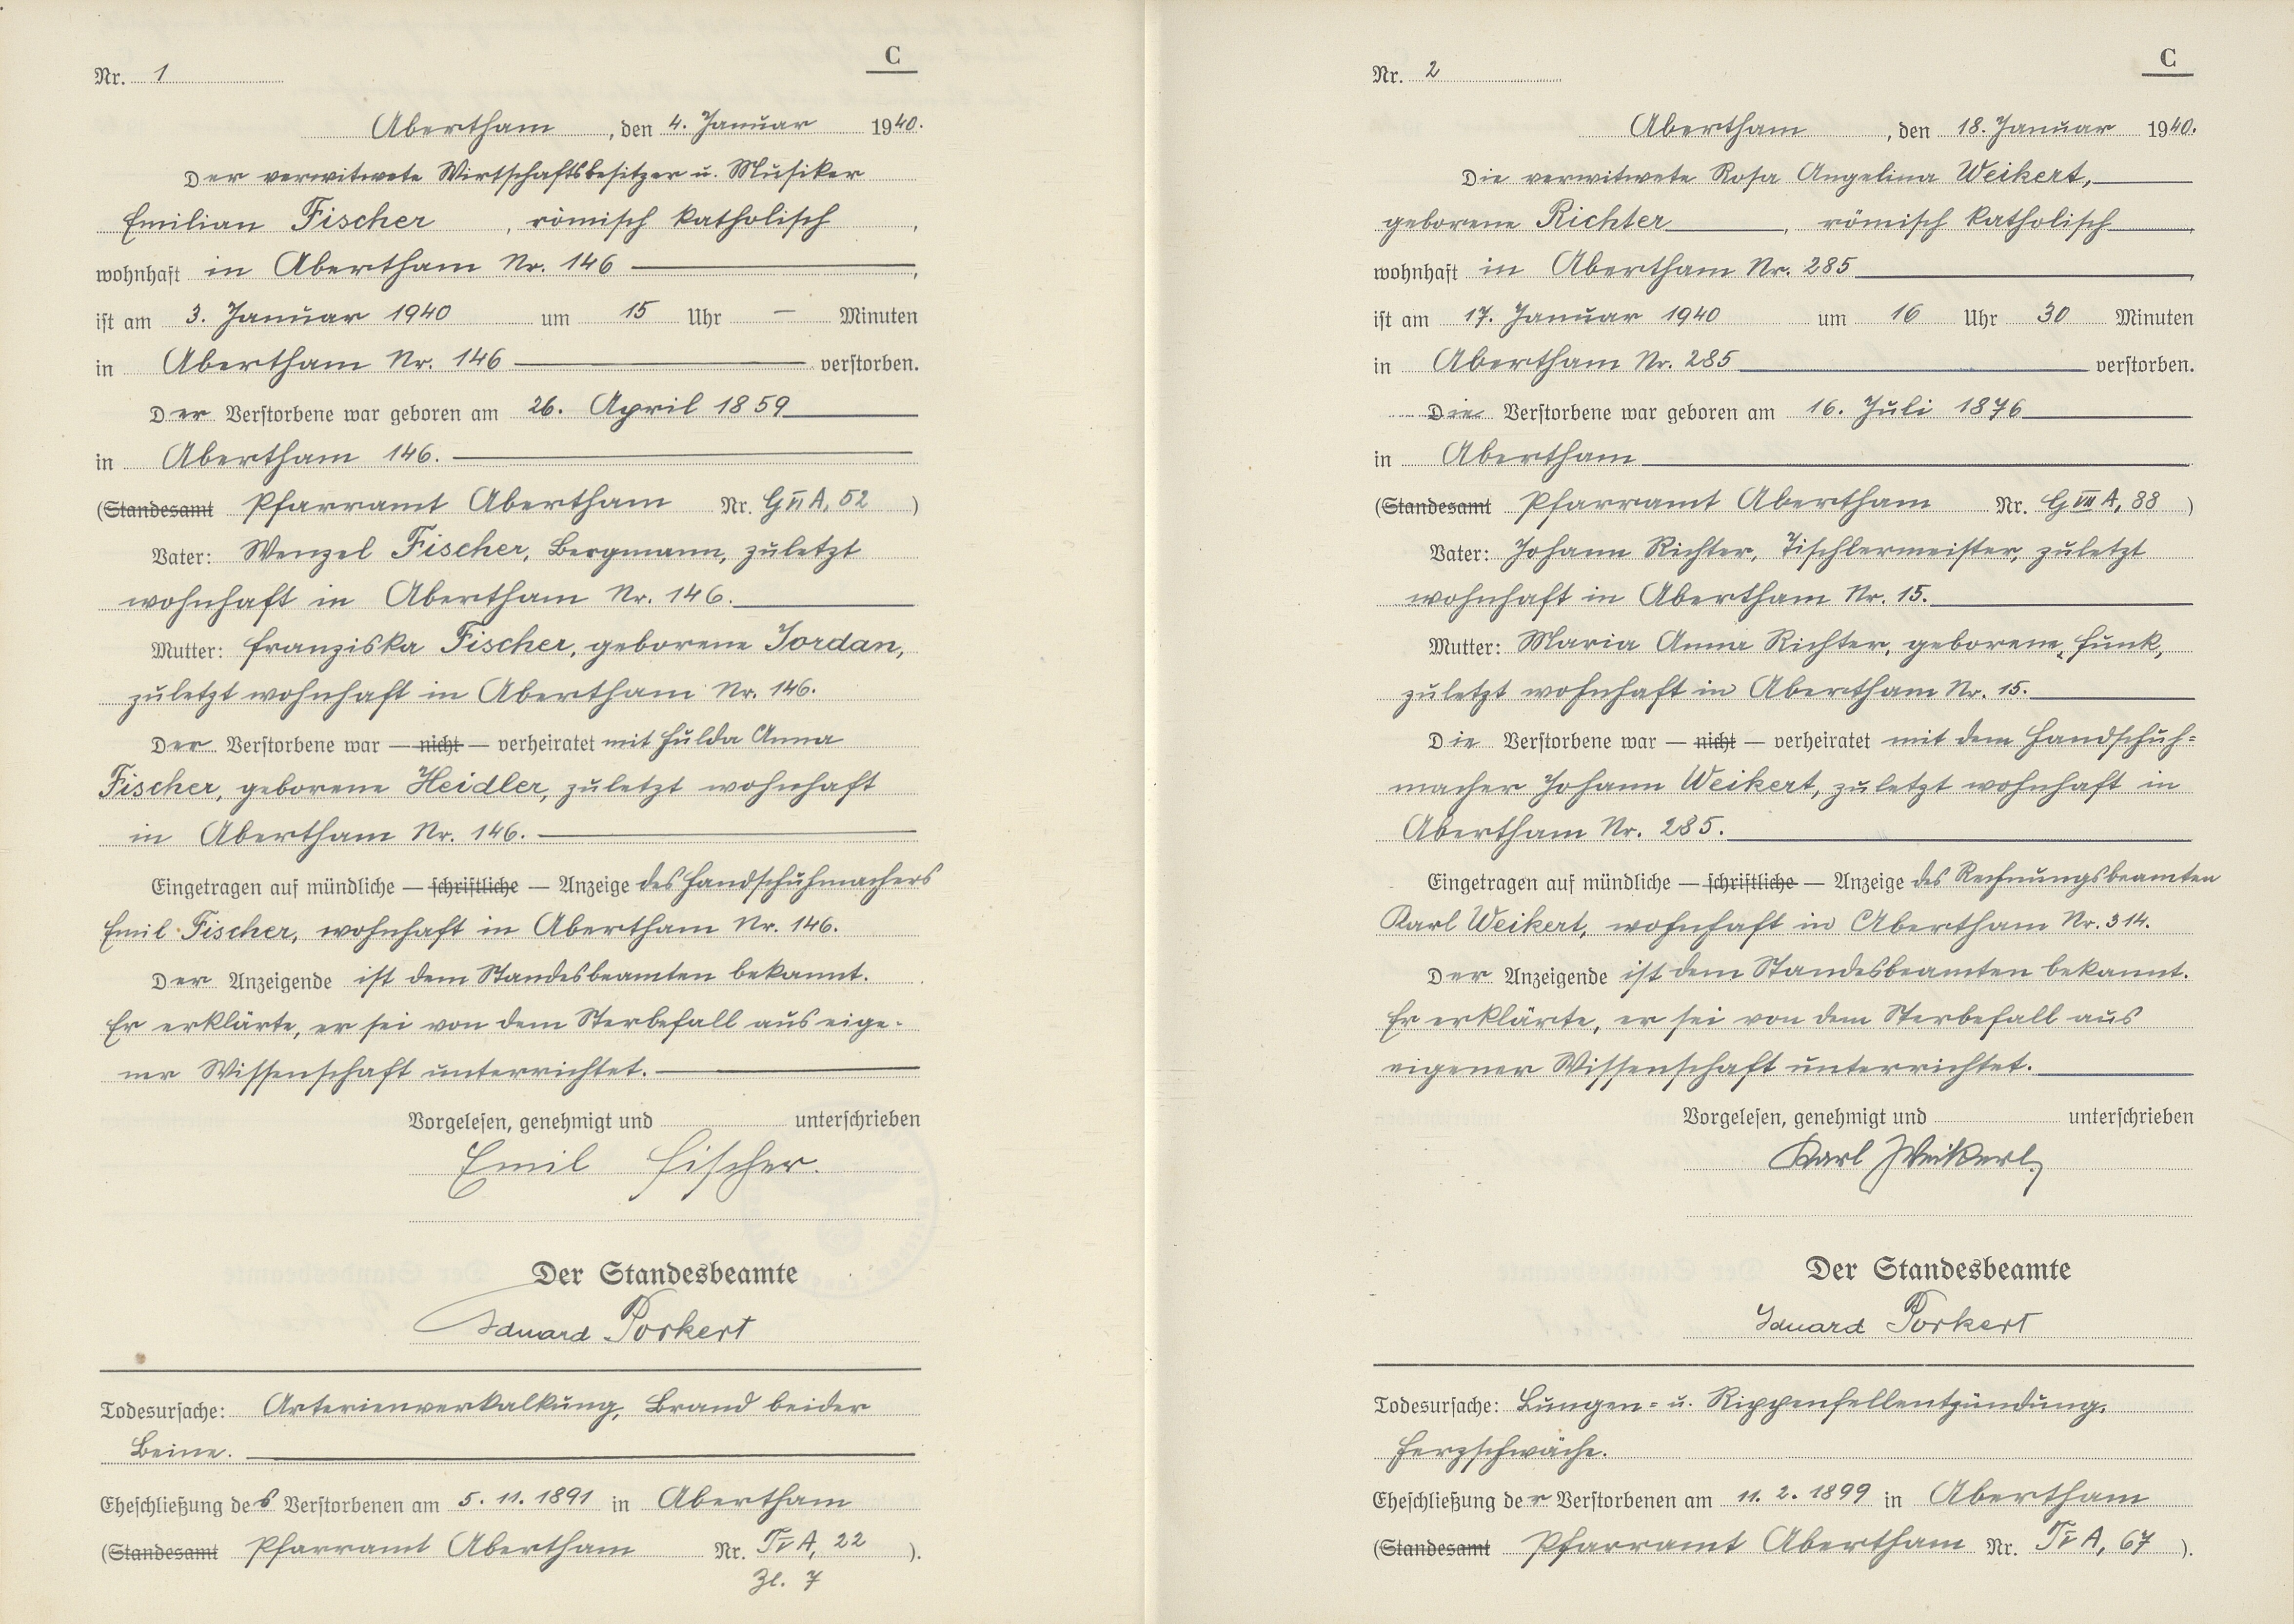 C
Nr. 1
Abertham, den 4. Januar 1940.
Der verwitwete Wirtschaftsbesitzer u. Musiker
Emilian Fischer, römisch katholisch,
wohnhaft in Abertham Nr. 146,
ist am 3. Januar 1940 um 15 Uhr — Minuten
in Abertham Nr. 146 verstorben.
Der Verstorbene war geboren am 26. April 1859
in Abertham 146.
(Standesamt Pfarramt Abertham Nr. G VI A, 52)
Vater: Wenzel Fischer, Bergmann, zuletzt
wohnhaft in Abertham Nr. 146.
Mutter: Franziska Fischer, geborene Jordan,
zuletzt wohnhaft in Abertham Nr. 146.
Der Verstorbene war — nicht — verheiratet mit Hulda Anna
Fischer, geborene Heidler, zuletzt wohnhaft
in Abertham Nr. 146.
Eingetragen auf mündliche — schriftliche — Anzeige des Handschuhmachers
Emil Fischer, wohnhaft in Abertham Nr. 146.
Der Anzeigende ist dem Standesbeamten bekannt.
Er erklärte, er sei von dem Sterbefall aus eige-
ner Wissenschaft unterrichtet.
Vorgelesen, genehmigt und unterschrieben
Emil Fischer.
Der Standesbeamte
Eduard Porkert
Todesursache: Arterienverkalkung, Brand beider
Beine.
Eheschließung des Verstorbenen am 5. 11. 1891 in Abertham
(Standesamt Pfarramt Abertham Nr. T V A, 22).
Zl. 7
C
Nr. 2
Abertham, den 18. Januar 1940.
Die verwitwete Rosa Angelina Weikert,
geborene Richter, römisch katholisch,
wohnhaft in Abertham Nr. 285,
ist am 17. Januar 1940 um 16 Uhr 30 Minuten
in Abertham Nr. 285 verstorben.
Die Verstorbene war geboren am 16. Juli 1876
in Abertham
(Standesamt Pfarramt Abertham Nr. G VII A, 88)
Vater: Johann Richter, Tischlermeister, zuletzt
wohnhaft in Abertham Nr. 15.
Mutter: Maria Anna Richter, geborene Funk,
zuletzt wohnhaft in Abertham Nr. 15.
Die Verstorbene war — nicht — verheiratet mit dem Handschuh=
macher Johann Weikert, zuletzt wohnhaft in
Abertham Nr. 285.
Eingetragen auf mündliche — schriftliche — Anzeige des Rechnungsbeamten
Karl Weikert, wohnhaft in Abertham Nr. 314.
Der Anzeigende ist dem Standesbeamten bekannt.
Er erklärte, er sei von dem Sterbefall aus
eigener Wissenschaft unterrichtet.
Vorgelesen, genehmigt und unterschrieben
Karl Weikert
Der Standesbeamte
Eduard Porkert
Todesursache: Lungen= u. Rippenfellentzündung,
Herzschwäche.
Eheschließung der Verstorbenen am 11. 2. 1899 in Abertham
(Standesamt Pfarramt Abertham Nr. T V A, 67).